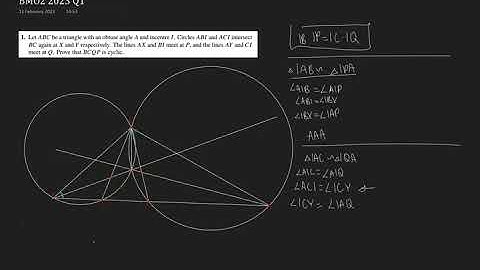 BMO2 2023 Q1
12 February 2023 14:53
1. Let ABC be a triangle with an obtuse angle A and incentre I. Circles ABI and ACI intersect
BC again at X and Y respectively. The lines AX and BI meet at P, and the lines AY and CI
meet at Q. Prove that BCQP is cyclic.
IB·IP=IC·IQ
△IAB ∼ △IPA
∠AIB=∠AIP
∠ABI=∠IBX
∠IBX=∠IAP
AAA
△IAC ∼ △IQA
∠AIC=∠AIQ
∠ACI=∠ICY
∠ICY=∠IAQ